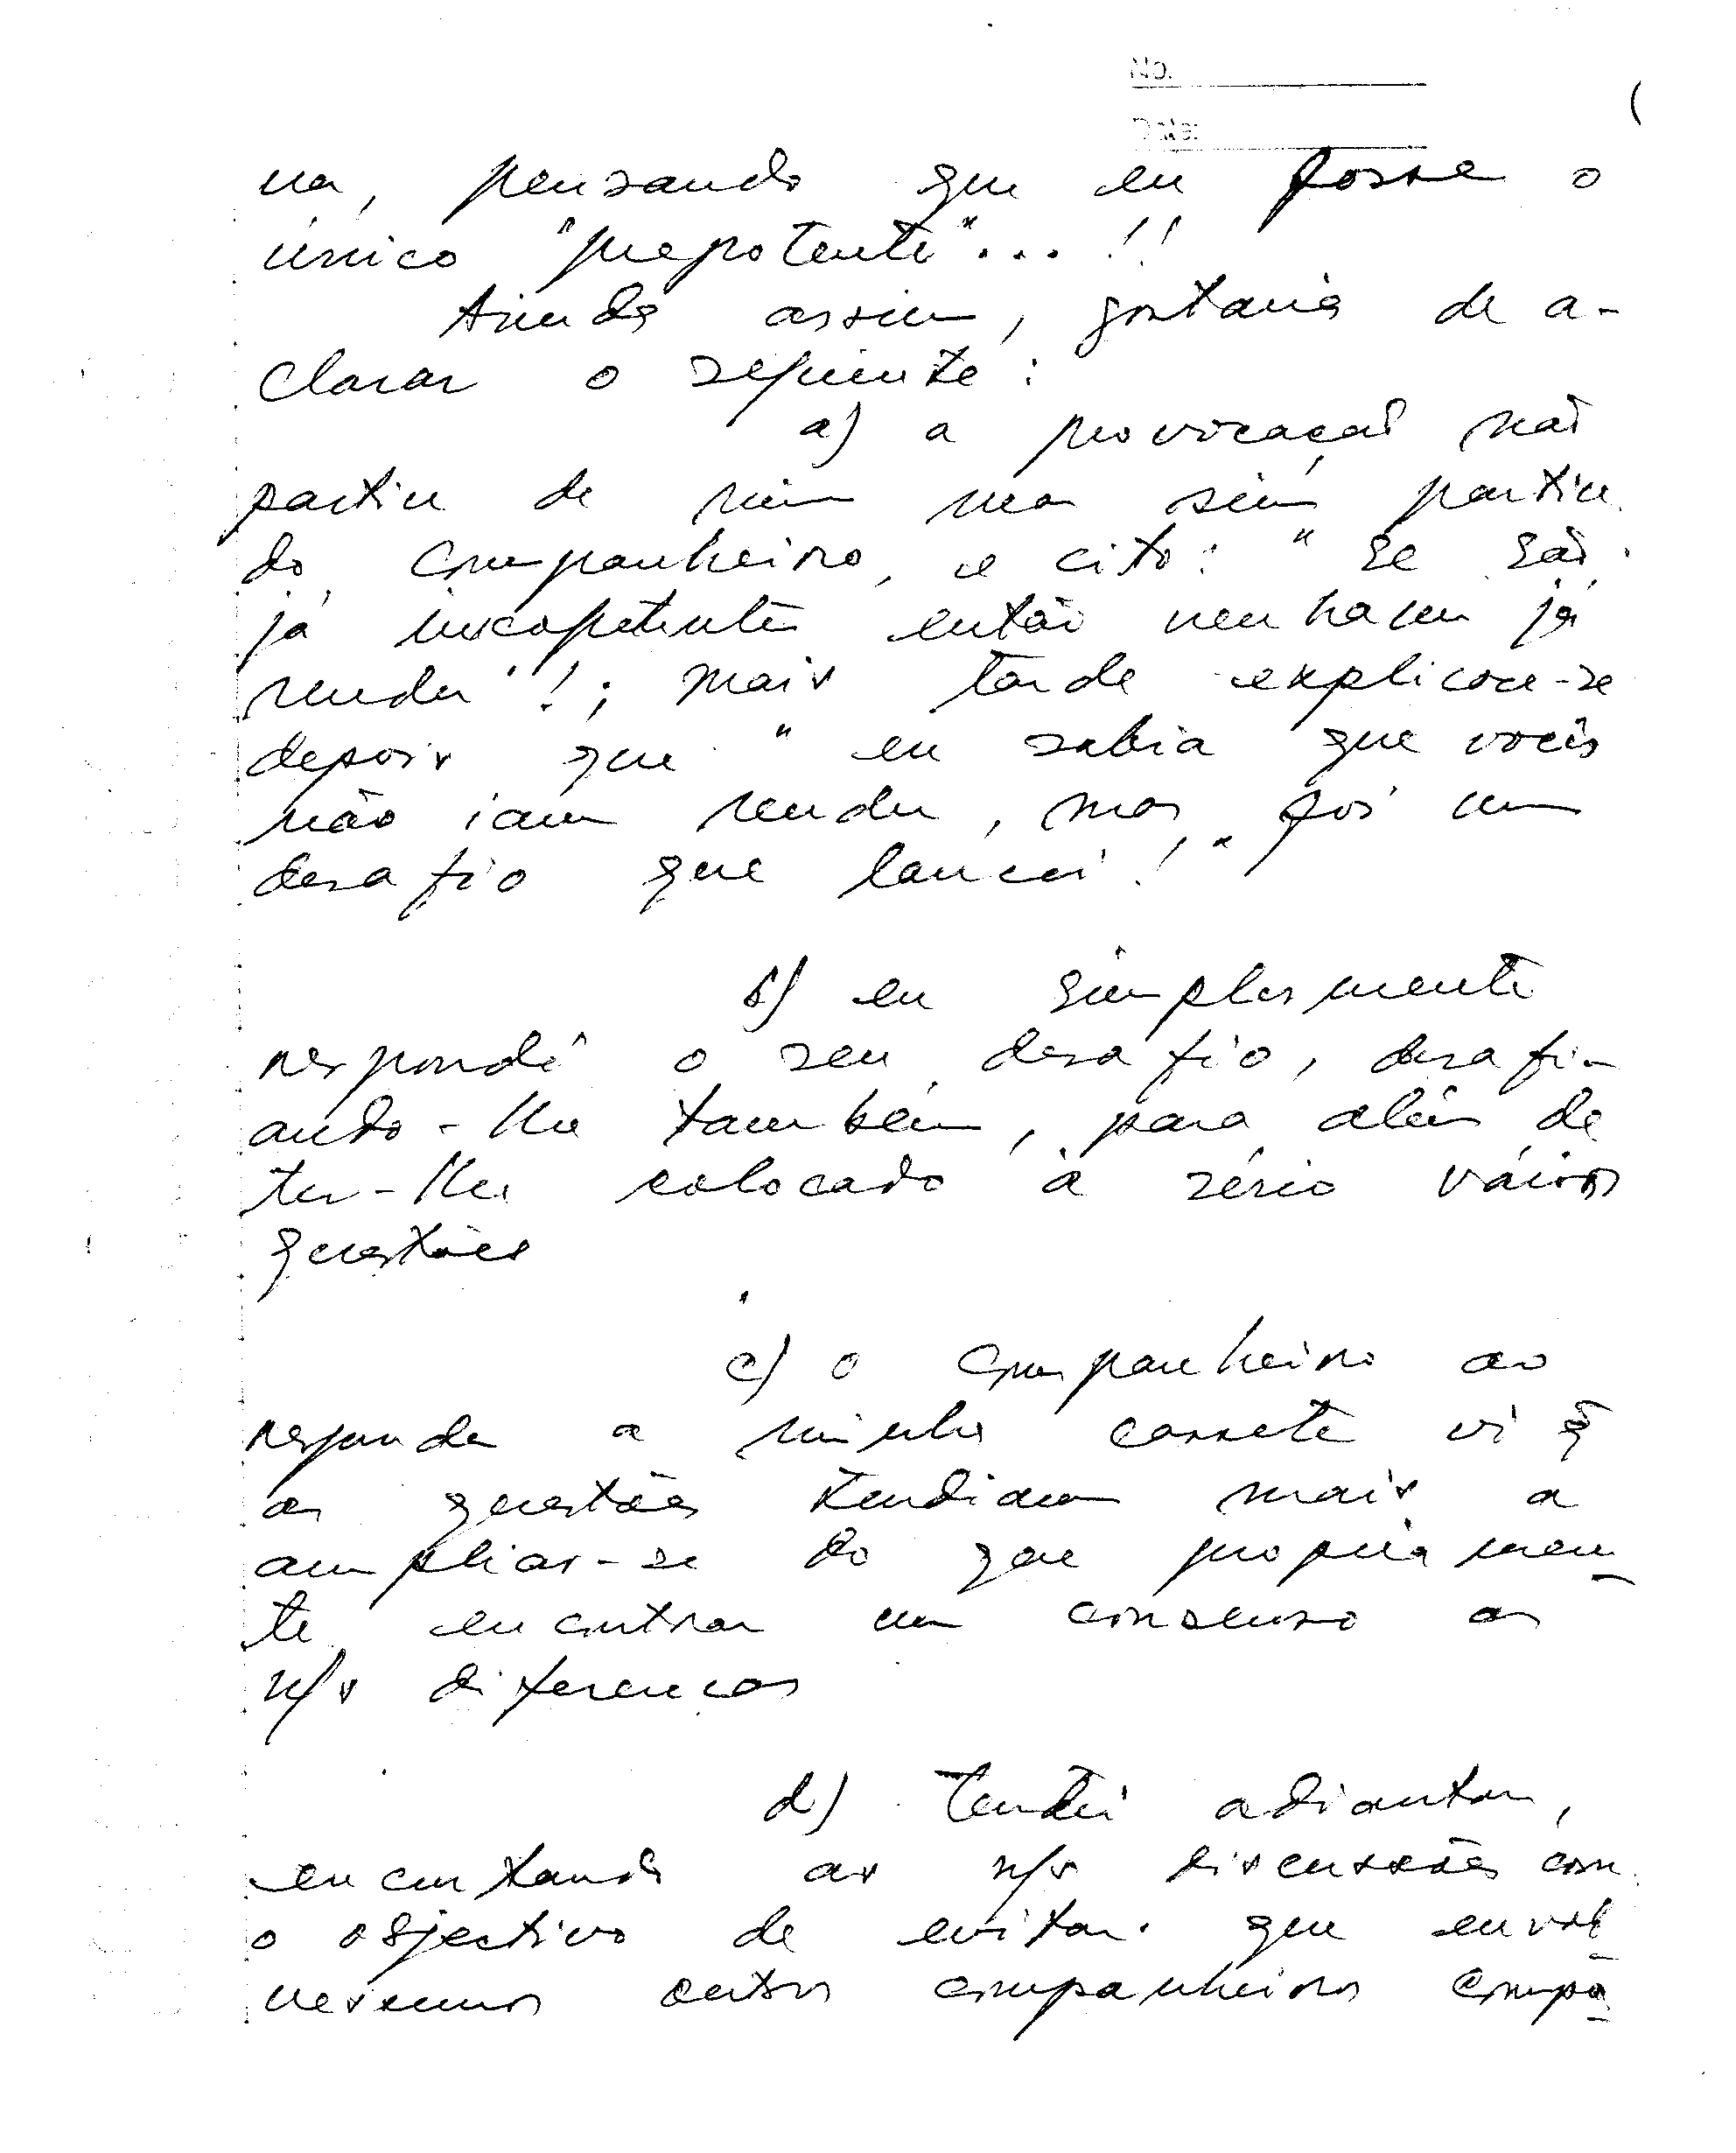 No.
Date:
na, pensando que eu fosse o
único "prepotente"... !!
Ainda assim, gostaria de a-
clarar o seguinte:
a) a provocação não
partiu de mim mas sim, partiu
do companheiro, e cito: "se são
já incopetentes então venham já
render"!; mais tarde explicou-se
depois que "eu sabia que vocês
não iam render, mas foi um
desafio que lancei!"
b) eu simplesmente
respondi o seu desafio, desafi-
ando-lhe também, para além de
ter-lhe colocado à sério várias
questões
c) o companheiro ao
responder a minha cassete vi q̃
as questões tendiam mais a
ampliar-se do que propriamen-
te encontrar um consenso as
n/s diferenças
d) Tentei adiantar,
encurtando as n/s discussões com
o objectivo de evitar que envol-
vessemos outros companheiros compa-